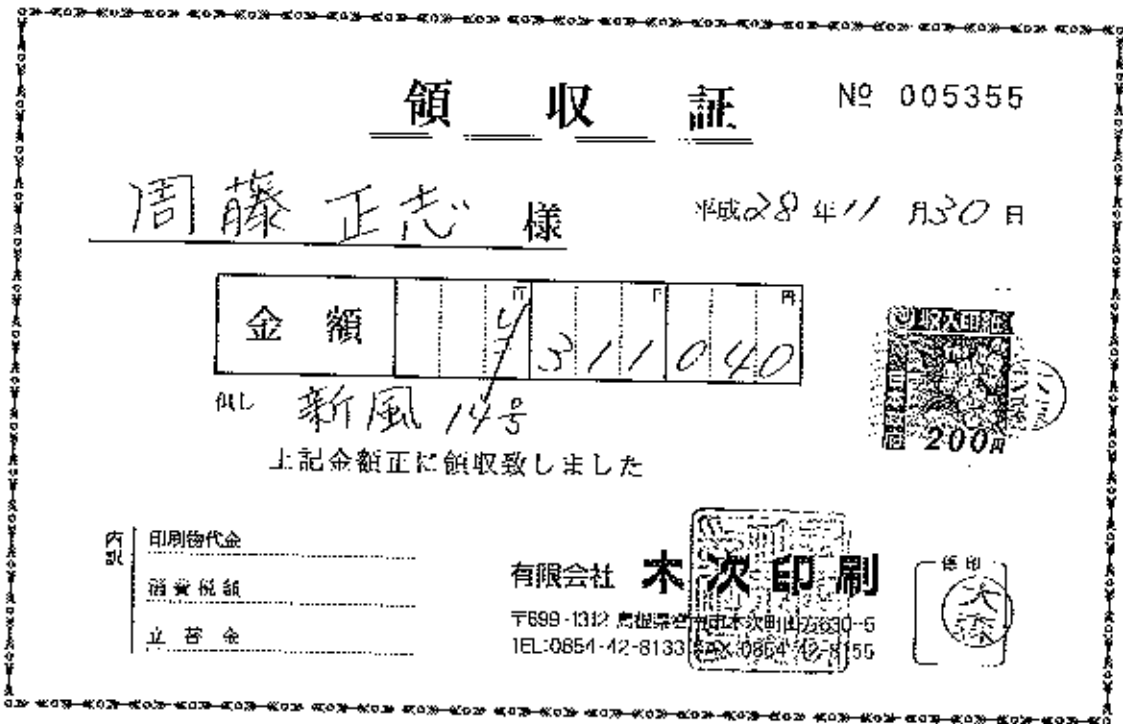 領収証
№ 005355
周藤 正志 様
平成28年11月30日
金額 ¥311040
百 千 円
但し 新風 14号
上記金額正に領収致しました
収入印紙
200円
内訳
印刷物代金
消費税額
立替金
有限会社 木次印刷
〒699-1312 島根県雲南市木次町山方630-5
TEL:0854-42-8133 FAX:0854-42-8155
係印